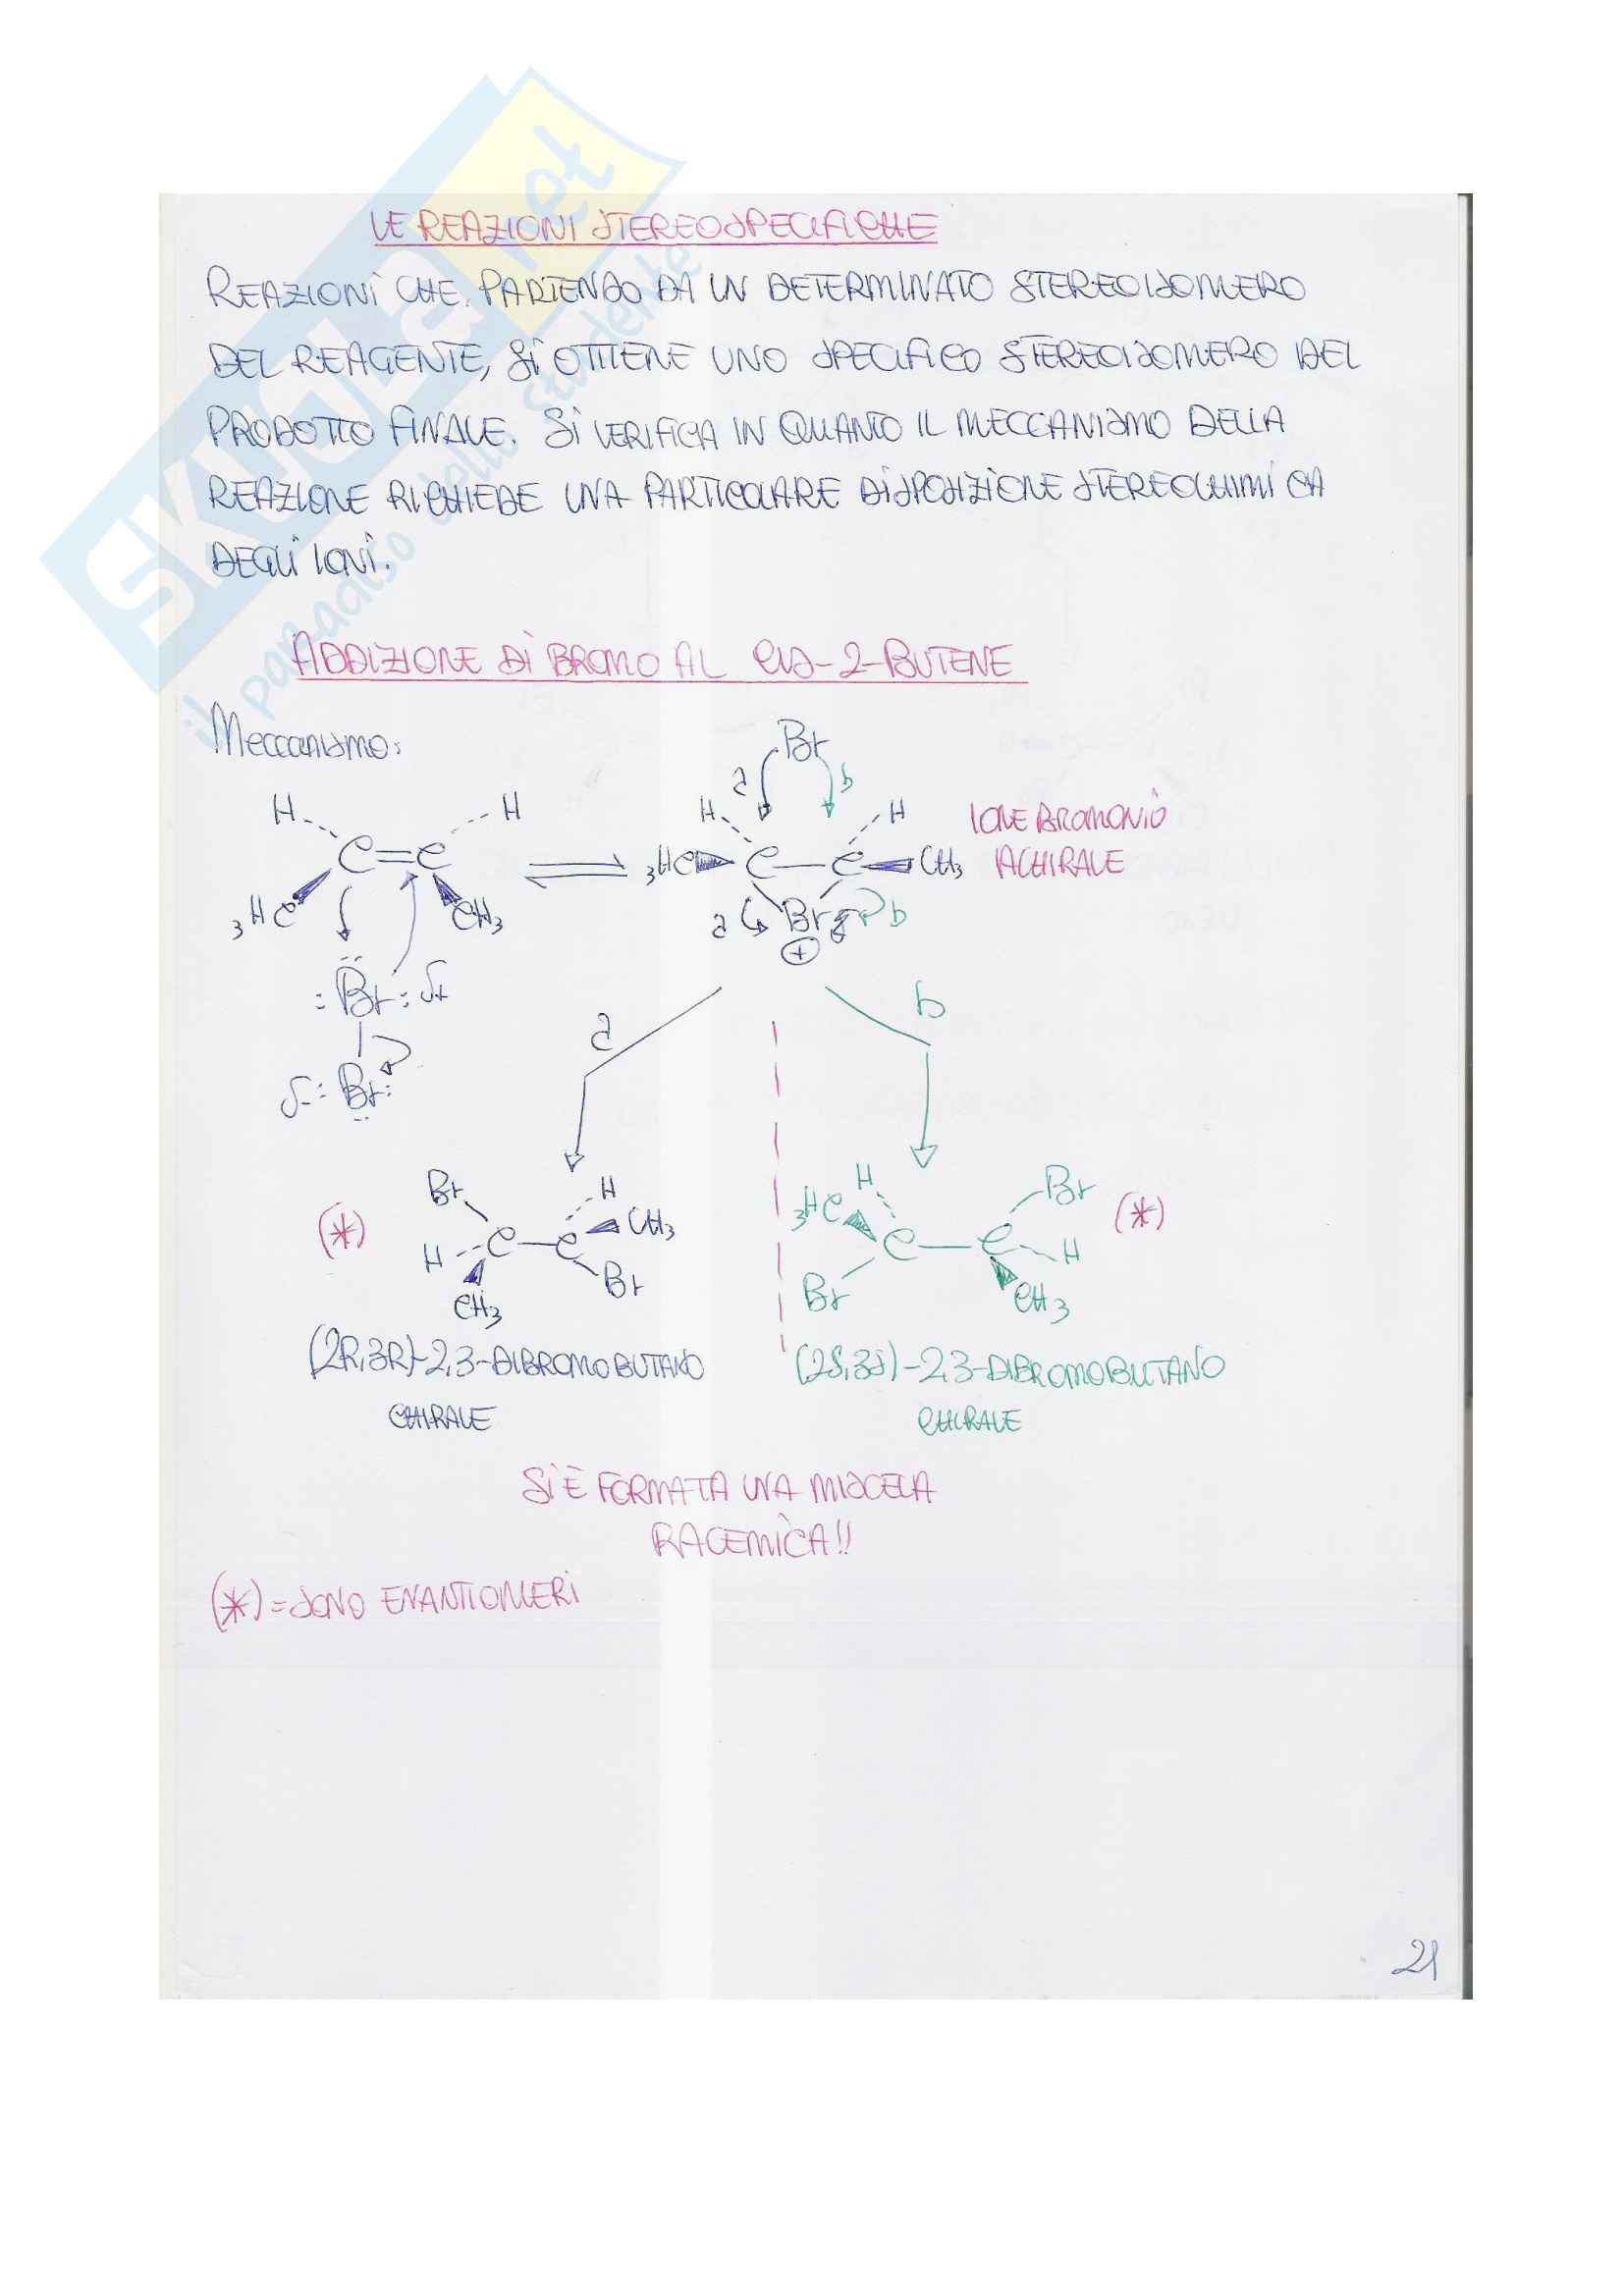 LE REAZIONI STEREOSPECIFICHE
REAZIONI CHE, PARTENDO DA UN DETERMINATO STEREOISOMERO
DEL REAGENTE, SI OTTIENE UNO SPECIFICO STEREOISOMERO DEL
PRODOTTO FINALE. SI VERIFICA IN QUANTO IL MECCANISMO DELLA
REAZIONE RICHIEDE UNA PARTICOLARE DISPOSIZIONE STEREOCHIMICA
DEGLI IONI.
ADDIZIONE DI BROMO AL CIS-2-BUTENE
Meccanismo:
Br
a b
H H H H
IONE BROMONIO
C=C
3HC C—C CH3
ACHIRALE
3HC CH3
a Br b
+
:Br: δ+
δ- :Br:
a b
Br H H Br
(*) C—C CH3 3HC C—C (*)
H Br H
CH3 Br CH3
(2R,3R)-2,3-DIBROMOBUTANO (2S,3S)-2,3-DIBROMOBUTANO
CHIRALE CHIRALE
SI È FORMATA UNA MISCELA
RACEMICA!!
(*) = SONO ENANTIOMERI
21
SKUOLA.net
il paradiso dello studente